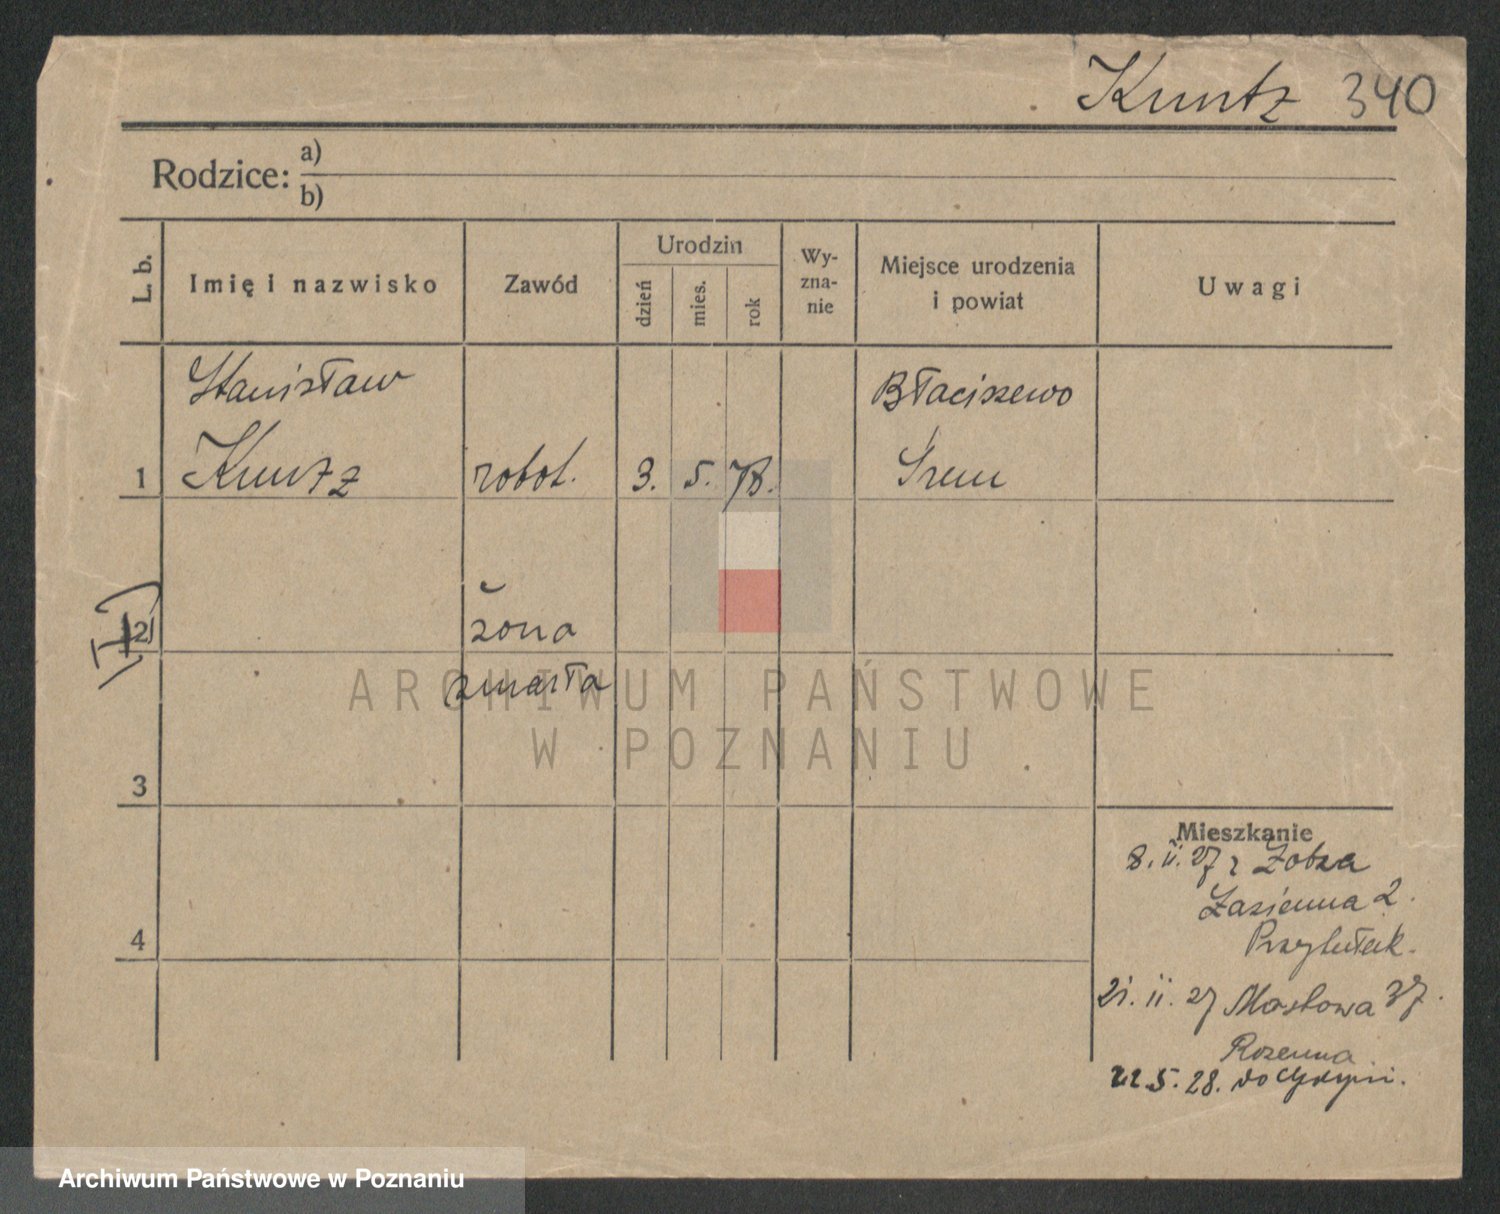 Kuntz 340
Rodzice: a)
b)
L. b.
Imię i nazwisko
Zawód
Urodzin
dzień
mies.
rok
Wy-
zna-
nie
Miejsce urodzenia
i powiat
Uwagi
Stanisław
Błaciszewo
1 Kuntz robot. 3. 5. 78. Śrem
2 żona
zmarła
3
4
Mieszkanie
8. ii. 27 z
Łazienna 2.
21. ii. 27 Mostowa 37.
22.5.28. do Gdyni.
ARCHIWUM PAŃSTWOWE
W POZNANIU
Archiwum Państwowe w Poznaniu